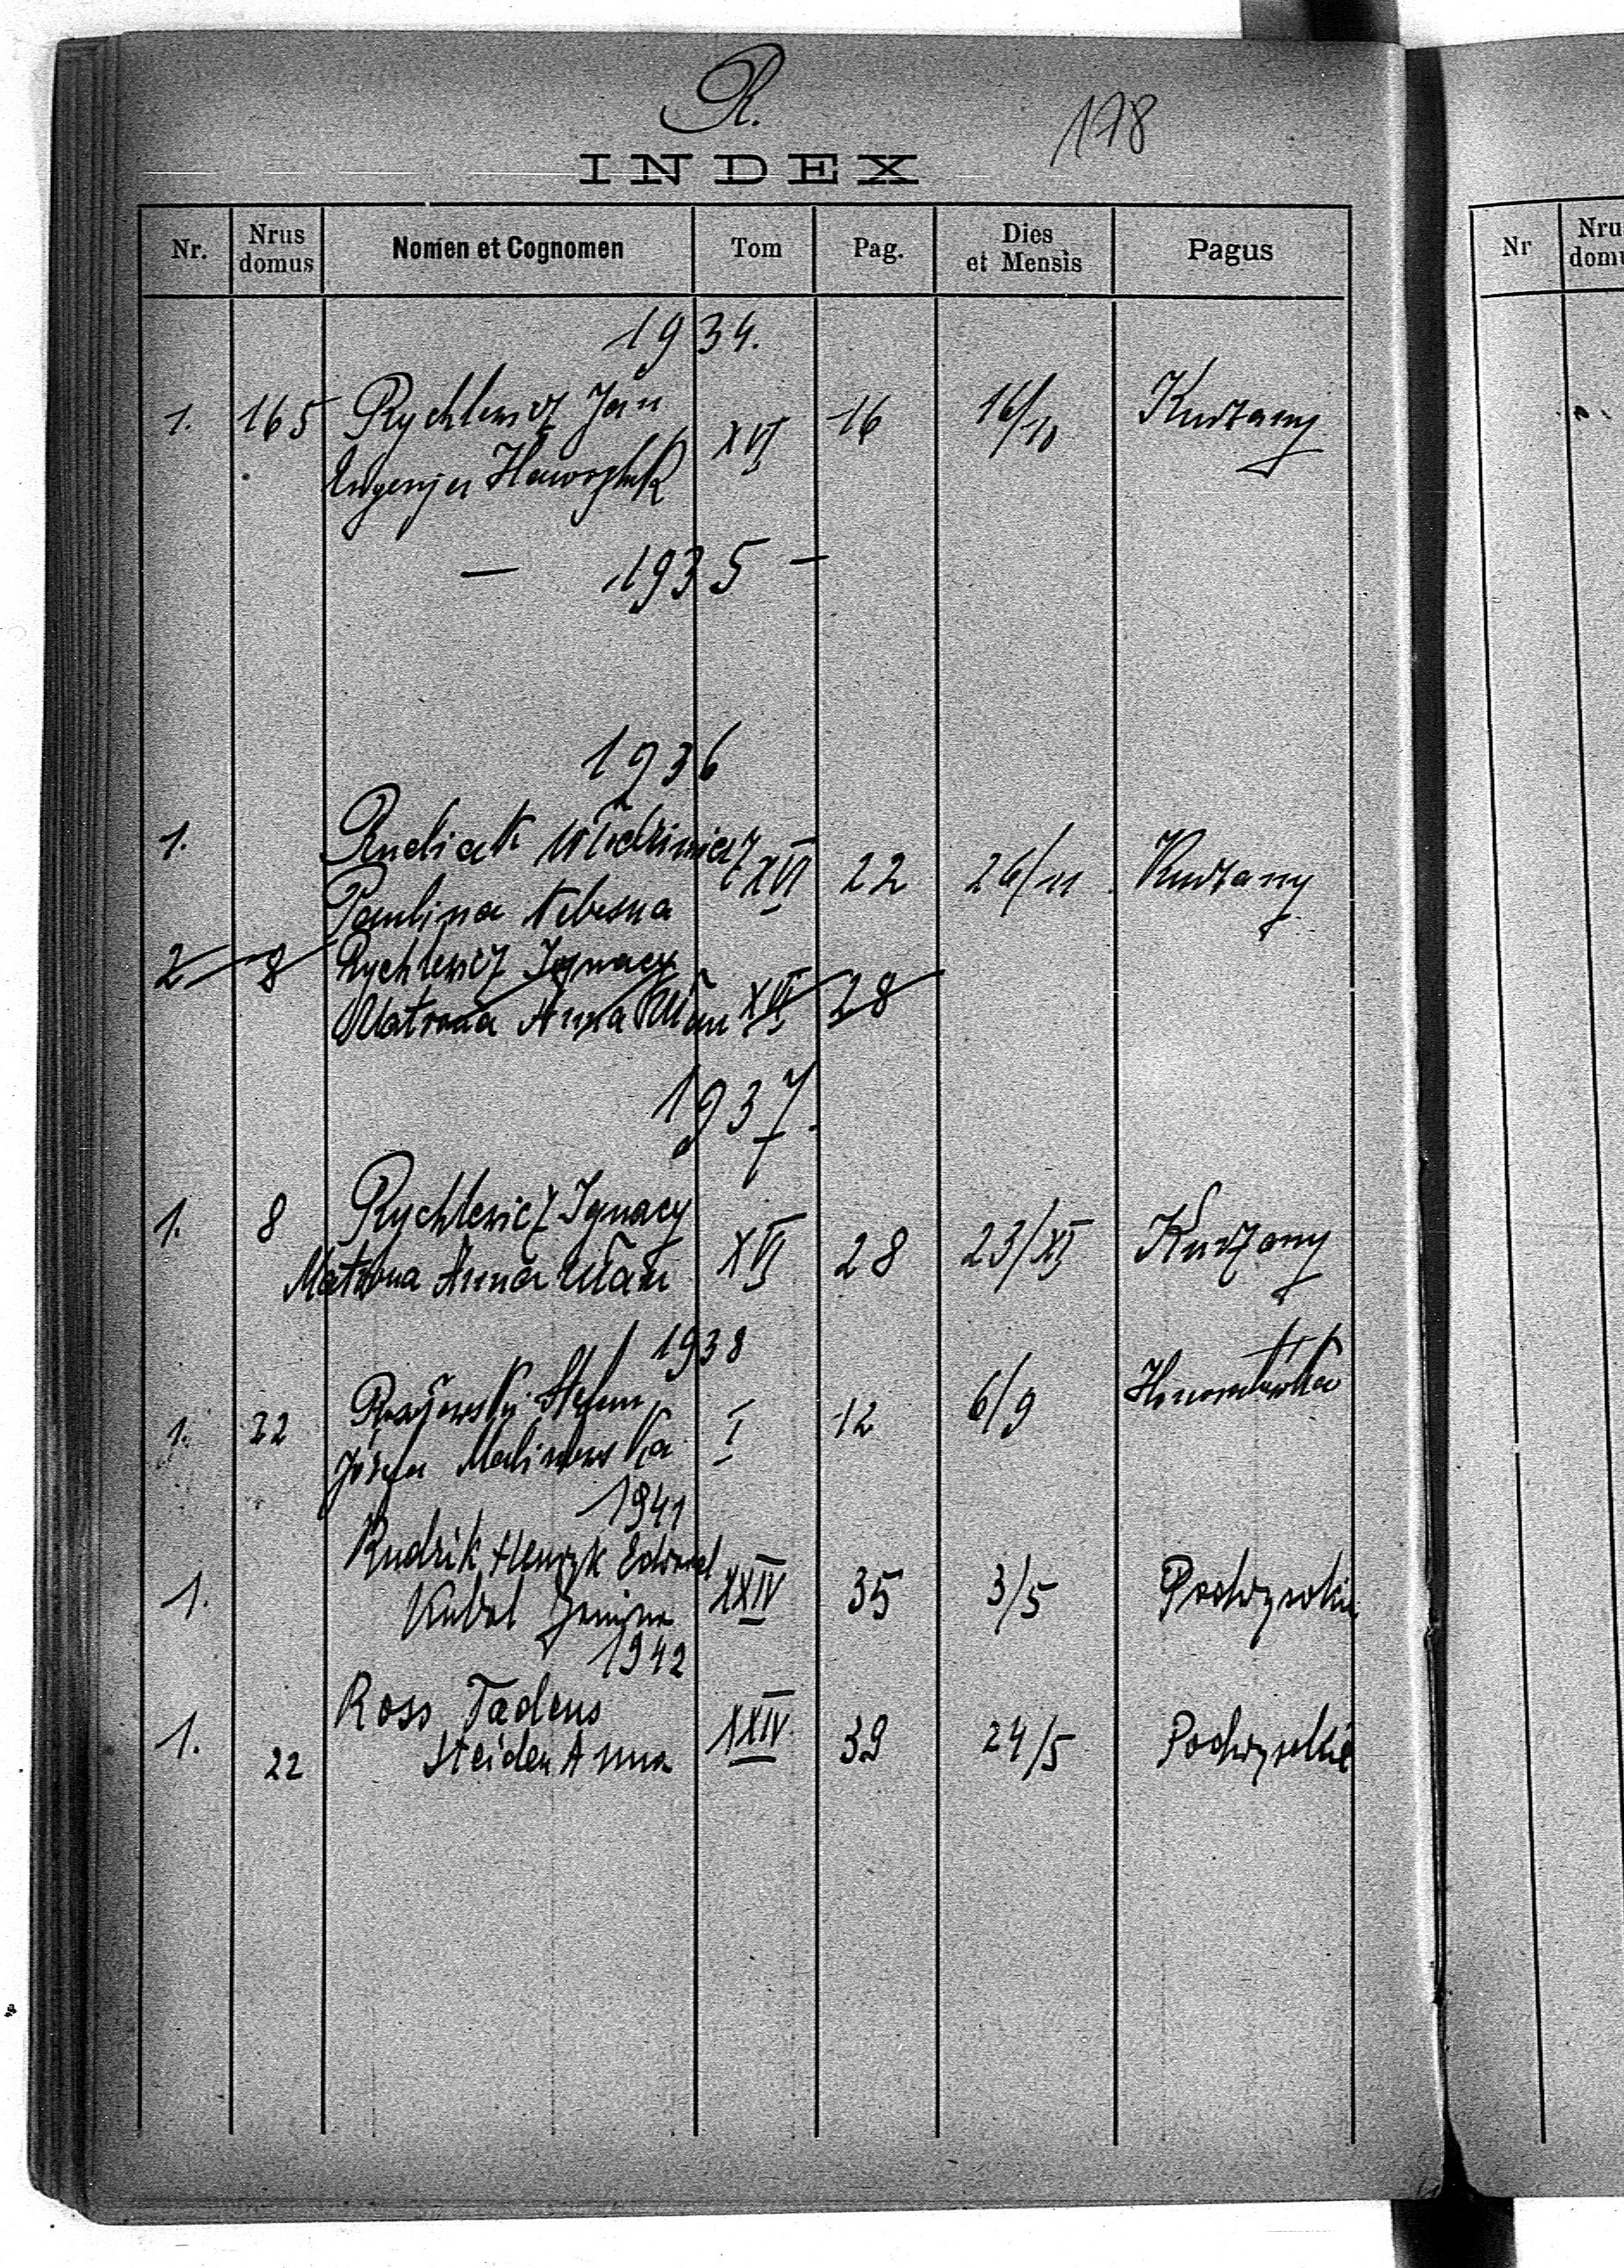 R.
178
INDEX
Nr. Nrus domus Nomen et Cognomen Tom Pag. Dies et Mensis Pagus
1934.
1. 165 Rychlewicz Jan XVI 16 16/10 Kurzany
Eugenja
— 1935 —
1936
1. Rudiak Włodzimierz XVI 22 26/11 Kurzany
Paulina Nebesna
2 8 Rychlewicz Ignacy
Matrona Anna Ułan XVI 28
1937.
1. 8 Rychlewicz Ignacy XVI 28 23/XI Kurzany
Matrona Anna Ułan
1938
1. 22 Stefan I 12 6/9
Józefa Malinowska
1941
Rudzik Henryk Edward
1. Kubal Janina XXIV 35 3/5 Podwysokie
1942
Ross Tadeus
1. 22 Steiden Anna XXIV 39 24/5 Podwysokie
Nr Nru
domu